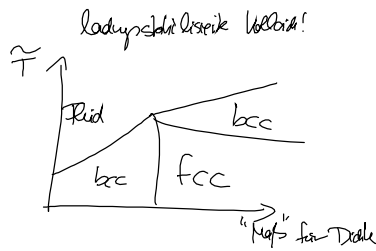 ladungsstabilisierte Kolloide!
T̃
fluid
bcc
bcc
fcc
"Maß" für Dichte